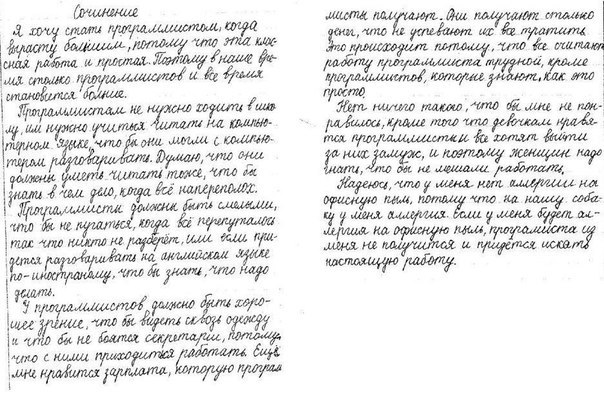 Сочинение
Я хочу стать программистом, когда
вырасту большим, потому что это клас-
сная работа и простая. Поэтому в наше вре-
мя столько программистов и все время
становется больше.
Программистам не нужно ходить в шко-
лу, им нужно учиться читать на компью-
терном языке, что бы они могли с компью-
тером разговаривать. Думаю, что они
должны уметь читать тоже, что бы
знать в чем дело, когда всё наперополох.
Программисты должны быть смелыми,
что бы не пугаться, когда всё перепуталось
так что никто не разберёт, или если при-
дется разговривать на английском языке
по-иностраному, что бы знать, что надо
делать.
У программистов должно быть хоро-
шее зрение, что бы видеть сквозь одежду
и что бы не боятся секретарш, потому,
что с ними приходиться работать. Ещё
мне нравится зарплата, которую програм
мисты получают. Они получают столько
денег, что не успевают их все тратить
Это происходит потому, что все считают
работу программиста трудной, кроме
програмистов, которые знают, как это
просто.
Нет ничего такого, что бы мне не пон-
равилось, кроме того что девочкам нравя-
тся программисты и все хотят выйти
за них замуж, и поэтому женщин надо
знать, что бы не мешали работать.
Надеюсь, что у меня нет аллергии на
офисную пыль, потому что на нашу соба-
ку у меня аллергия. если у меня будет ал-
лергия на офисную пыль, програмиста из
меня не получится и придётся искать
настоящую работу.